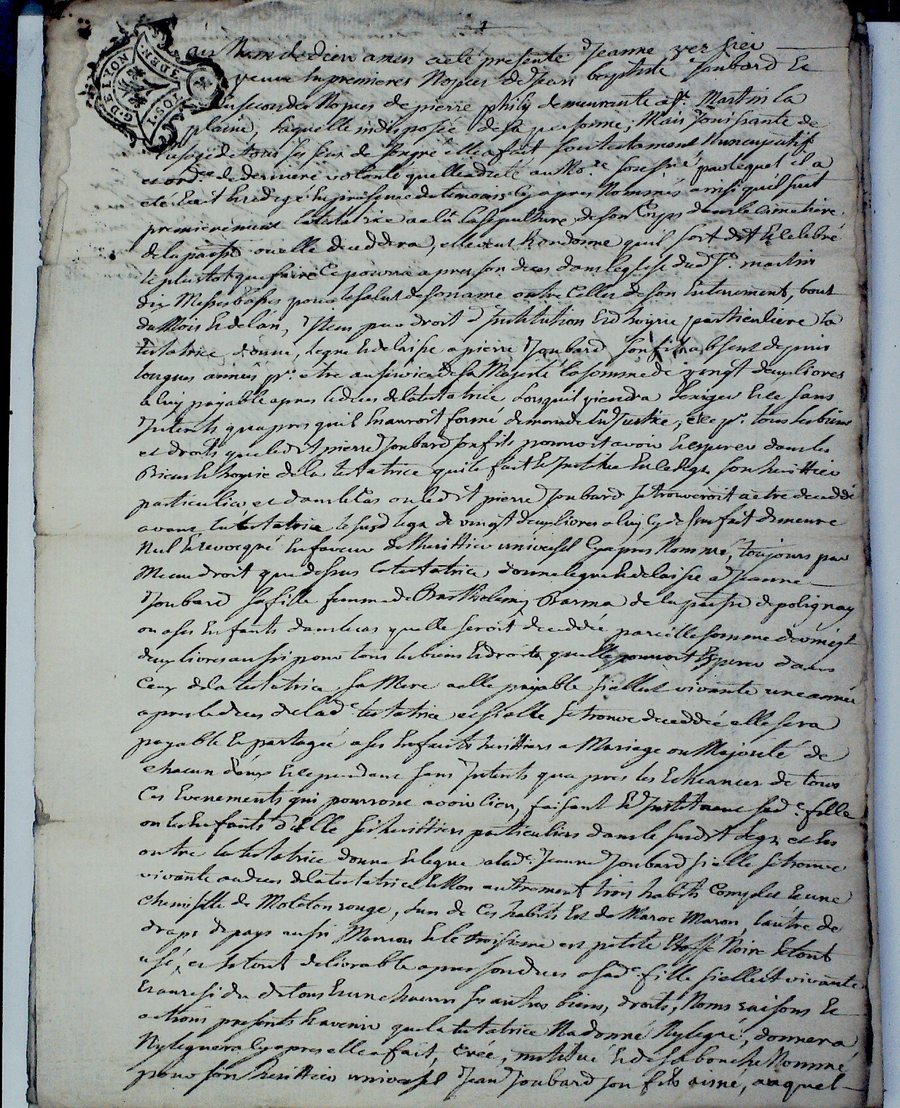 G. DE LYON
3 DEN.
10 S. T
au Nom de dieu amen a eté presente Jeanne
veuve en premieres Nopces de Jean baptiste Joubard et
En secondes Nopces de pierre philij demeurante a St. Martin la
plaine, laquelle indisposée de sa personne, Mais Jouissante de
l'usage de tous ses sens de son gré elle a fait son testament Nuncupatif
et ord.e de derniere volonté quelle a dicté au No.re sousigné par lequel il a
eté Ecrit et redigé En présence des temoins Cy apres Nommés ainsi qu'il suit
premierement la testatrice a élu la sepulture de son Corps dans le Cimetiere
de la parsse ou elle decedera, et veut et ordonne qu'il soit dit et celebré
le plutot que faire Ce pourra apres son deces dans leglise dud. St. martin
dix Messes basses pour le salut de son ame outre Celles de son Enterrement, bout
du Mois et de l'an, Item par droit d'Institution Et d'hoyrie particuliere la
testatrice donne, legue et delaisse a pierre Joubard son fils absent depuis
longues années pr. etre au service de sa Majesté la somme de vingt deux livres
a luy payable apres le deces de la testatrice lorsquil viendra l'exiger et ce sans
Interets qu'apres qu'il En auroit formé demande En Justice, et ce pr. tous les biens
et droits que led.t pierre Joubard son fils pourroit avoir et esperer dans les
Biens et hoyrie de la testatrice qui le fait et Institue En led. legs son heritier
particulier et dans le cas ou led.t pierre Joubard se trouveroit a etre decedé
avant la testatrice le susd. legs de vingt deux livres a luy Cy dessus fait demeure
Nul et revoqué En faveur de l'heritier universel Cy apres Nommé, toujours par
Meme droit que dessus la testatrice, donne legue et delaisse a Jeanne
Joubard sa fille femme de Barthelemy Barma de la parsse de polignay
ou a ses Enfants dans le cas quelle seroit decedée pareille somme de vingt
deux livres aussi pour tous les biens et droits quelle pourroit Esperer dans
Ceux de la testatrice sa Mere a elle payable si elle est vivante une année
apres le deces de lad.e testatrice et si elle se trouve decedée elle sera
payable et partagée a ses Enfants heritiers a Mariage ou Majorité de
chacun d'eux et cependant sans Interets qu'apres les Echeances de tous
Ces Evenements qui pourront avoir lieu, faisant et Instituant sad.e fille
ou les Enfants d'elle ses heritiers particuliers dans le susdit legs, et En
outre la testatrice donne et legue a lad.e Jeanne Joubard si elle se trouve
vivante au deces de la testatrice et Non autrement trois habits Complet et une
chemisette de Moleton rouge, l'un de Ces habits Est de Maroc Maron, l'autre de
draps de pays aussi Marron et le troisieme en petite Etoffe Noire le tout
usé, et le tout delivrable apres son deces a sad.e fille si elle est vivante
Et au residu de tous Et un chacuns ses autres biens, droits, Noms raisons et
actions presents et avenir que la testatrice N'a donné Ny legué, donnera
Ny leguera Cy apres elle a fait, Créé, institué et de sa bouche Nommé
pour son heritier universel Jean Joubard son fils aisné, auquel